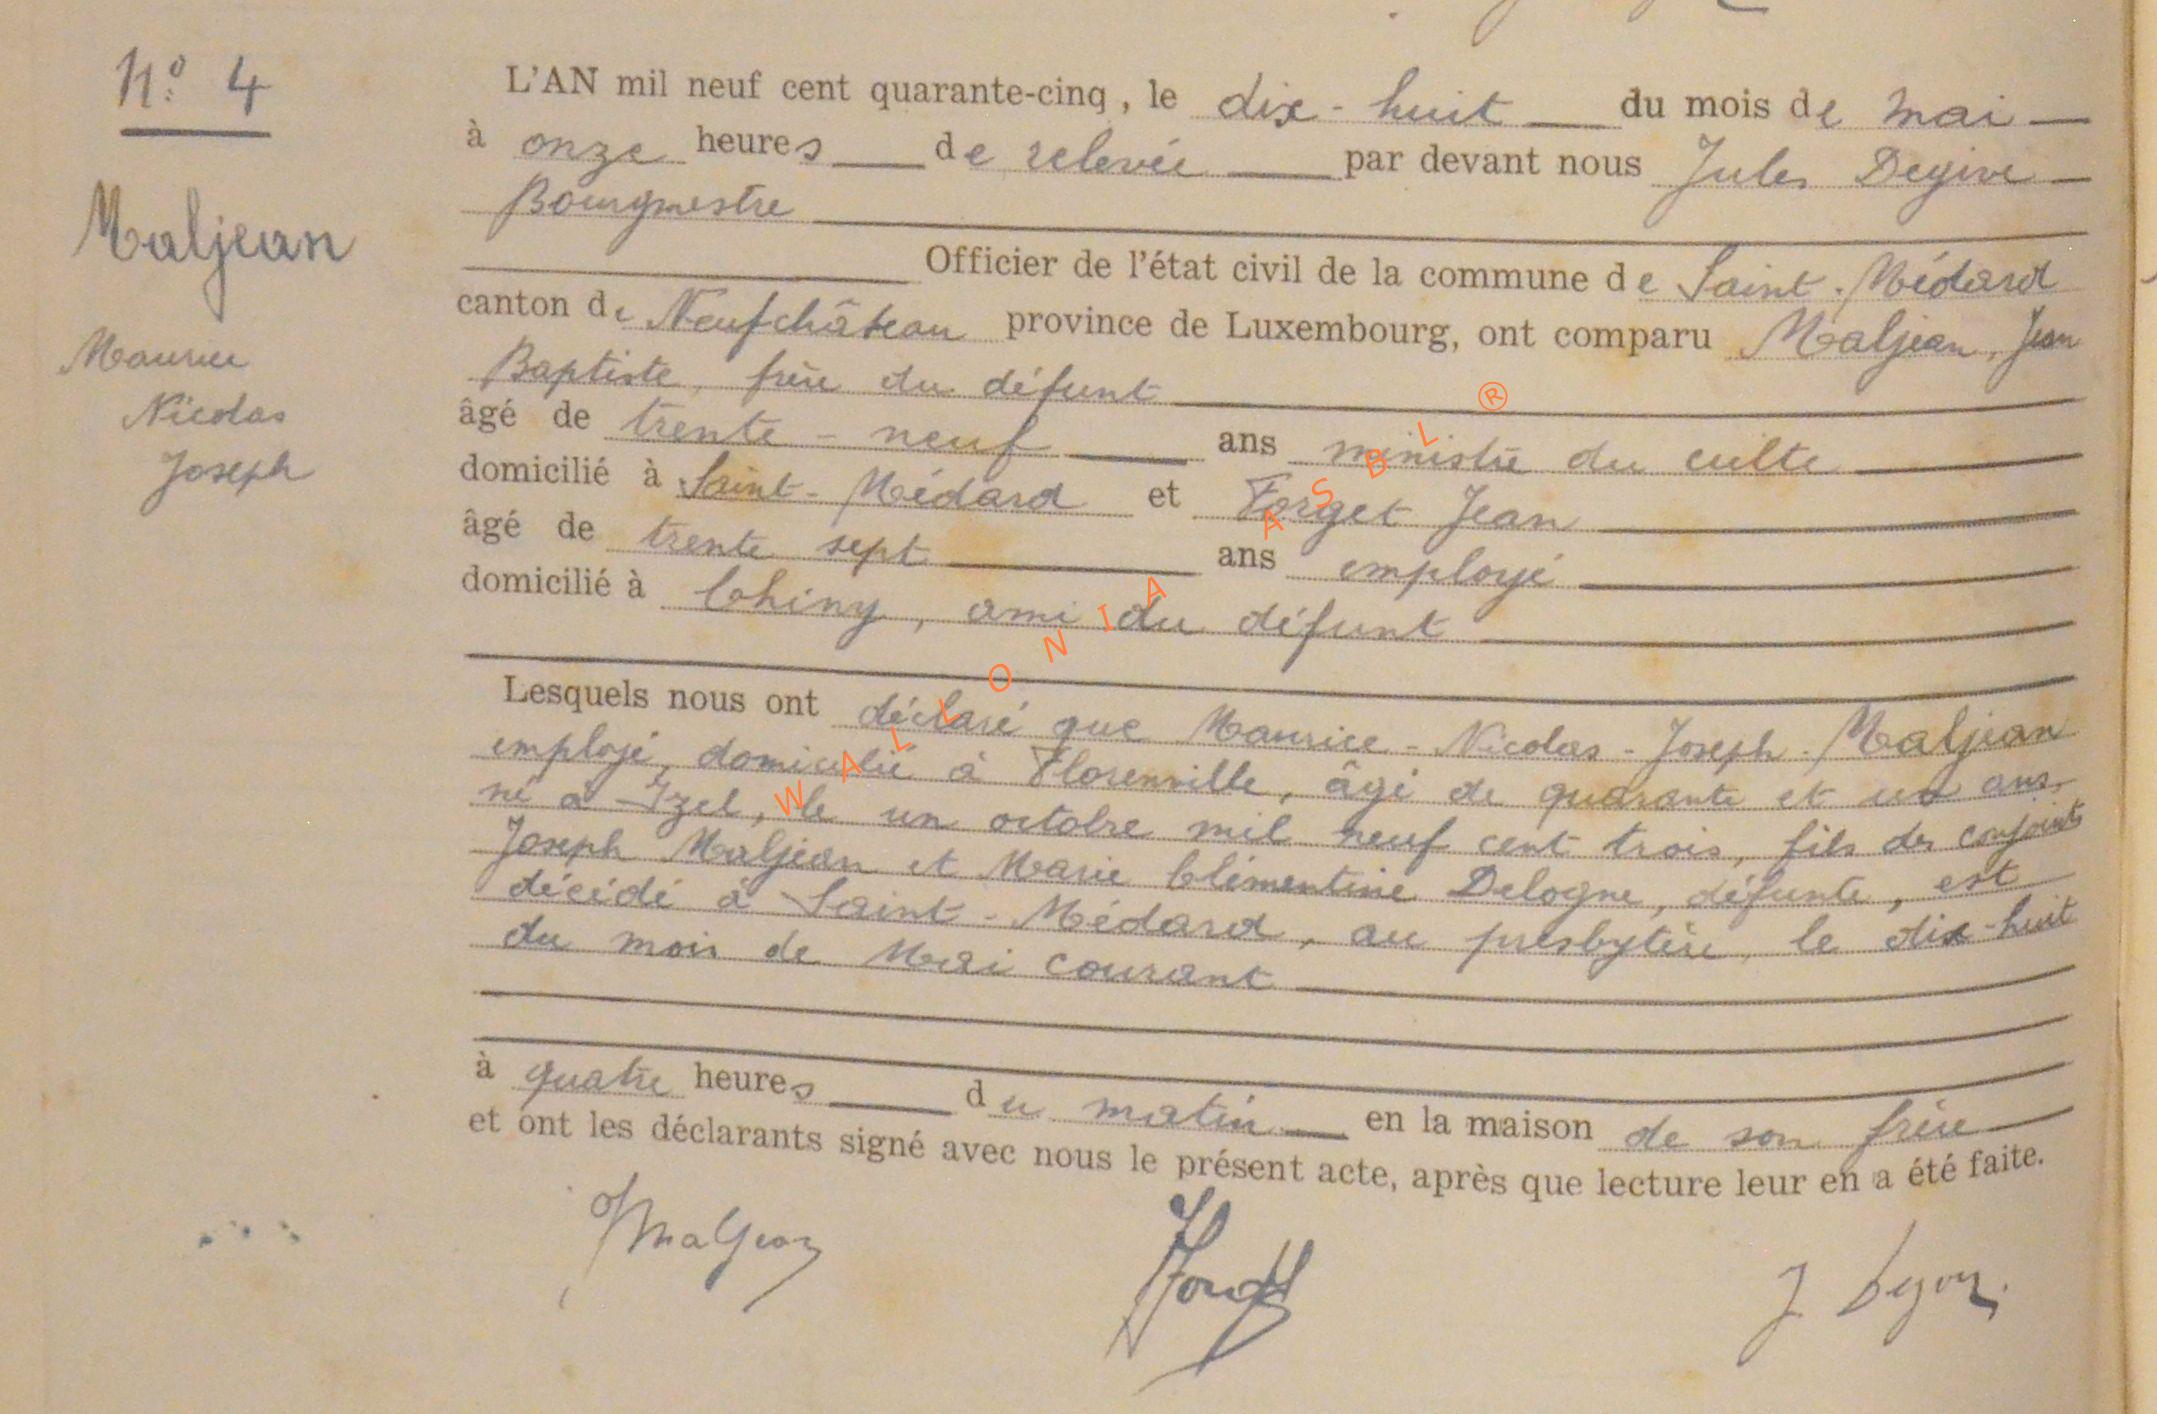 N° 4
Maljean
Maurice
Nicolas
Joseph
L'AN mil neuf cent quarante-cinq, le dix-huit du mois de mai
à onze heures de relevée par devant nous Jules Degive
Bourgmestre
Officier de l'état civil de la commune de Saint-Médard
canton de Neufchâteau province de Luxembourg, ont comparu Maljean, Jean
Baptiste, frère du défunt
âgé de trente-neuf ans ministre du culte
domicilié à Saint-Médard et Forget Jean
âgé de trente sept ans employé
domicilié à Chiny, ami du défunt
Lesquels nous ont déclaré que Maurice-Nicolas-Joseph-Maljean
employé, domicilié à Florenville, âgé de quarante et un ans,
né à Izel, le un octobre mil neuf cent trois, fils des conjoints
Joseph Maljean et Marie Clémentine Delogne, défunte, est
décédé à Saint-Médard, au presbytère, le dix-huit
du mois de Mai courant
à quatre heures du matin en la maison de son frère
et ont les déclarants signé avec nous le présent acte, après que lecture leur en a été faite.
JMaljean
J Degive
WALLONIA ASBL ®